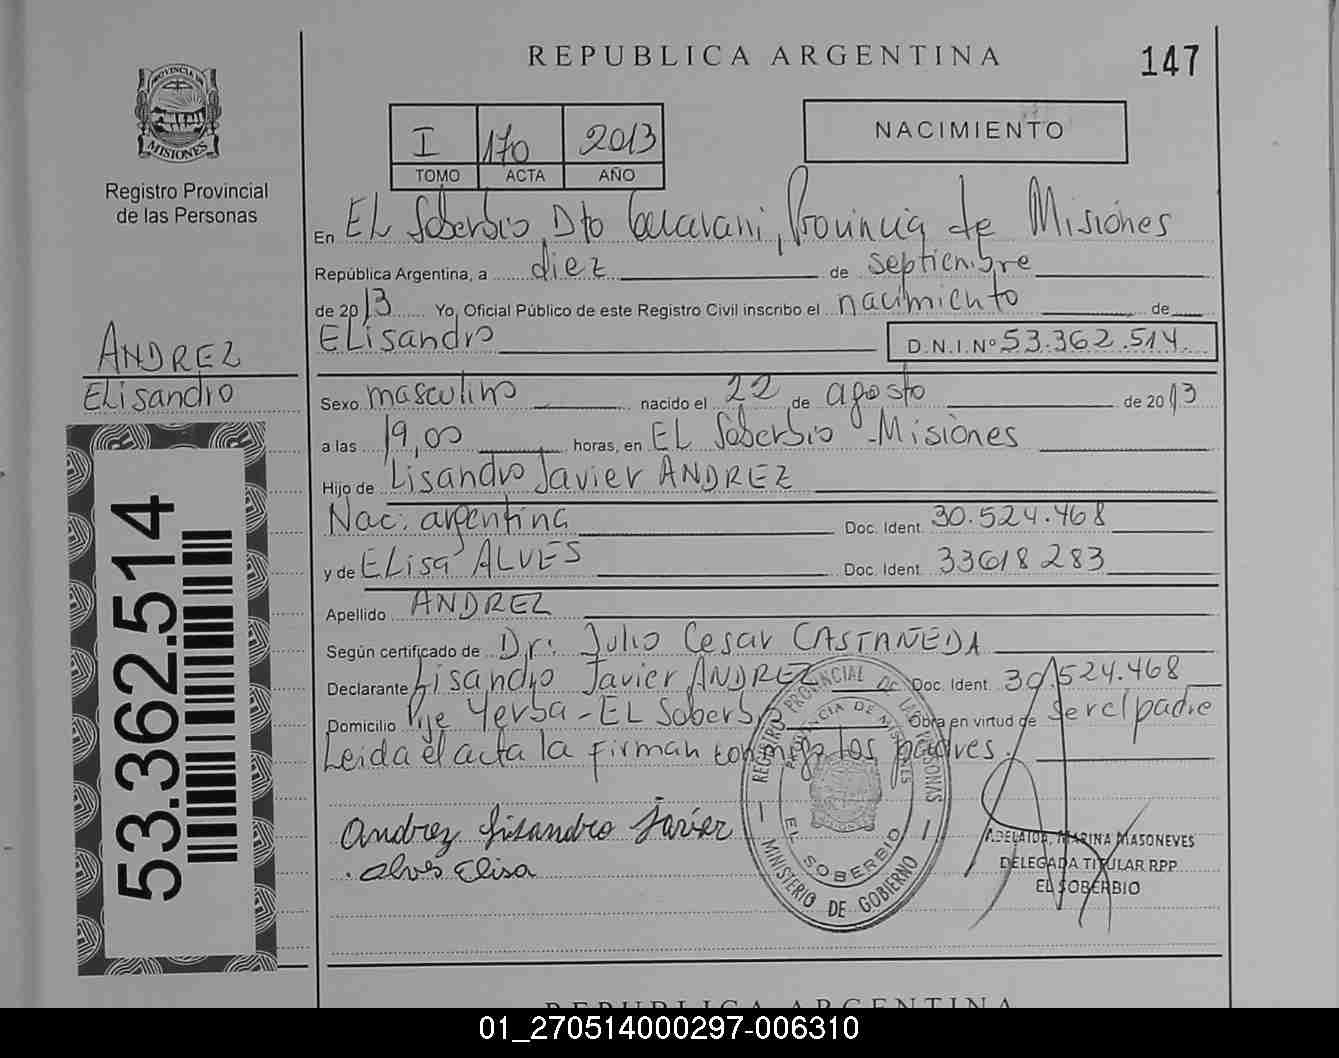 REPUBLICA ARGENTINA
147
PROVINCIA DE
MISIONES
Registro Provincial
de las Personas
I 170 2013
TOMO ACTA AÑO
NACIMIENTO
En EL Soberbio, Dto Guarani, Provincia de Misiones
República Argentina, a diez de septiembre
de 2013 Yo, Oficial Público de este Registro Civil inscribo el nacimiento de
ELisandro
D.N.I.Nº 53.362.514
ANDREZ
ELisandro
Sexo masculino nacido el 22 de agosto de 2013
a las 19,00 horas, en EL Soberbio - Misiones
Hijo de Lisandro Javier ANDREZ
Nac: argentina Doc. Ident. 30.524.468
y de ELisa ALVES Doc. Ident. 33618283
Apellido ANDREZ
Según certificado de Dr: Julio Cesar CASTAÑEDA
Declarante Lisandro Javier ANDREZ Doc. Ident. 30.524.468
Domicilio Pje Yerba - EL Soberbio Obra en virtud de ser el padre
Leida el acta la firman conmigo los padres.
53.362.514
Andrez Lisandro Javier
Alves Elisa
REGISTRO PROVINCIAL DE LAS PERSONAS
PROVINCIA DE MISIONES
EL SOBERBIO
MINISTERIO DE GOBIERNO
ADELAIDA MARINA MASONEVES
DELEGADA TITULAR RPP
EL SOBERBIO
REPUBLICA ARGENTINA
01_270514000297-006310